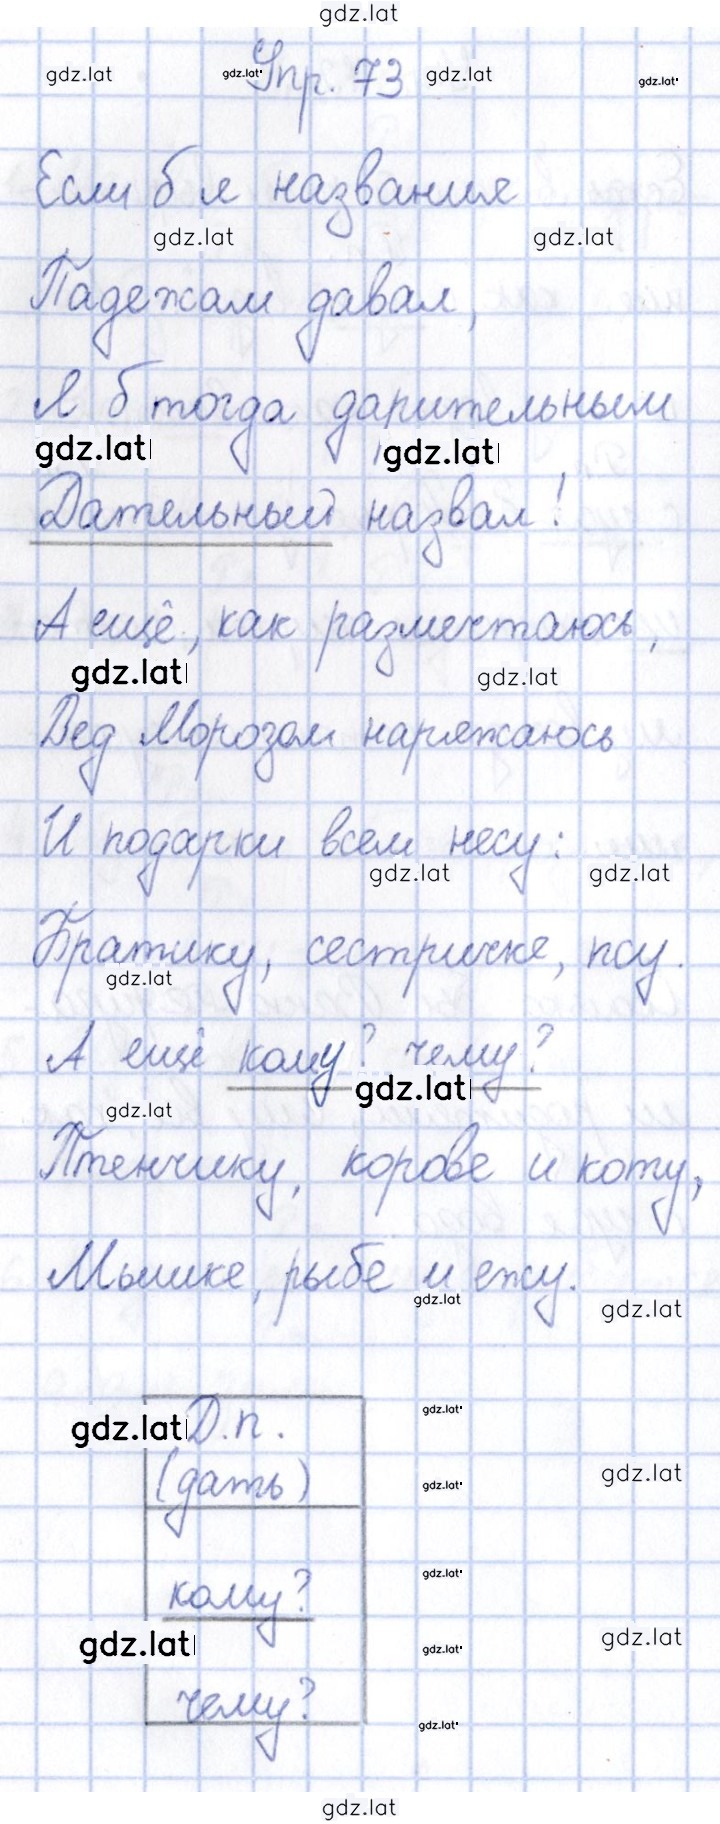 gdz.lat
gdz.lat gdz.lat Упр. 73 gdz.lat gdz.lat
Если б я названия
gdz.lat gdz.lat
Падежам давал,
Я б тогда дарительным
gdz.lat gdz.lat
Дательный назвал!
А ещё, как размечтаюсь,
gdz.lat gdz.lat
Дед Морозом наряжаюсь
И подарки всем несу:
gdz.lat gdz.lat
Братику, сестричке, псу.
gdz.lat
А ещё кому? чему?
gdz.lat
gdz.lat
Птенчику, корове и коту,
Мышке, рыбе и ежу.
gdz.lat gdz.lat
gdz.lat Д.п. gdz.lat
(дать) gdz.lat gdz.lat
кому? gdz.lat
gdz.lat gdz.lat gdz.lat
чему? gdz.lat
gdz.lat